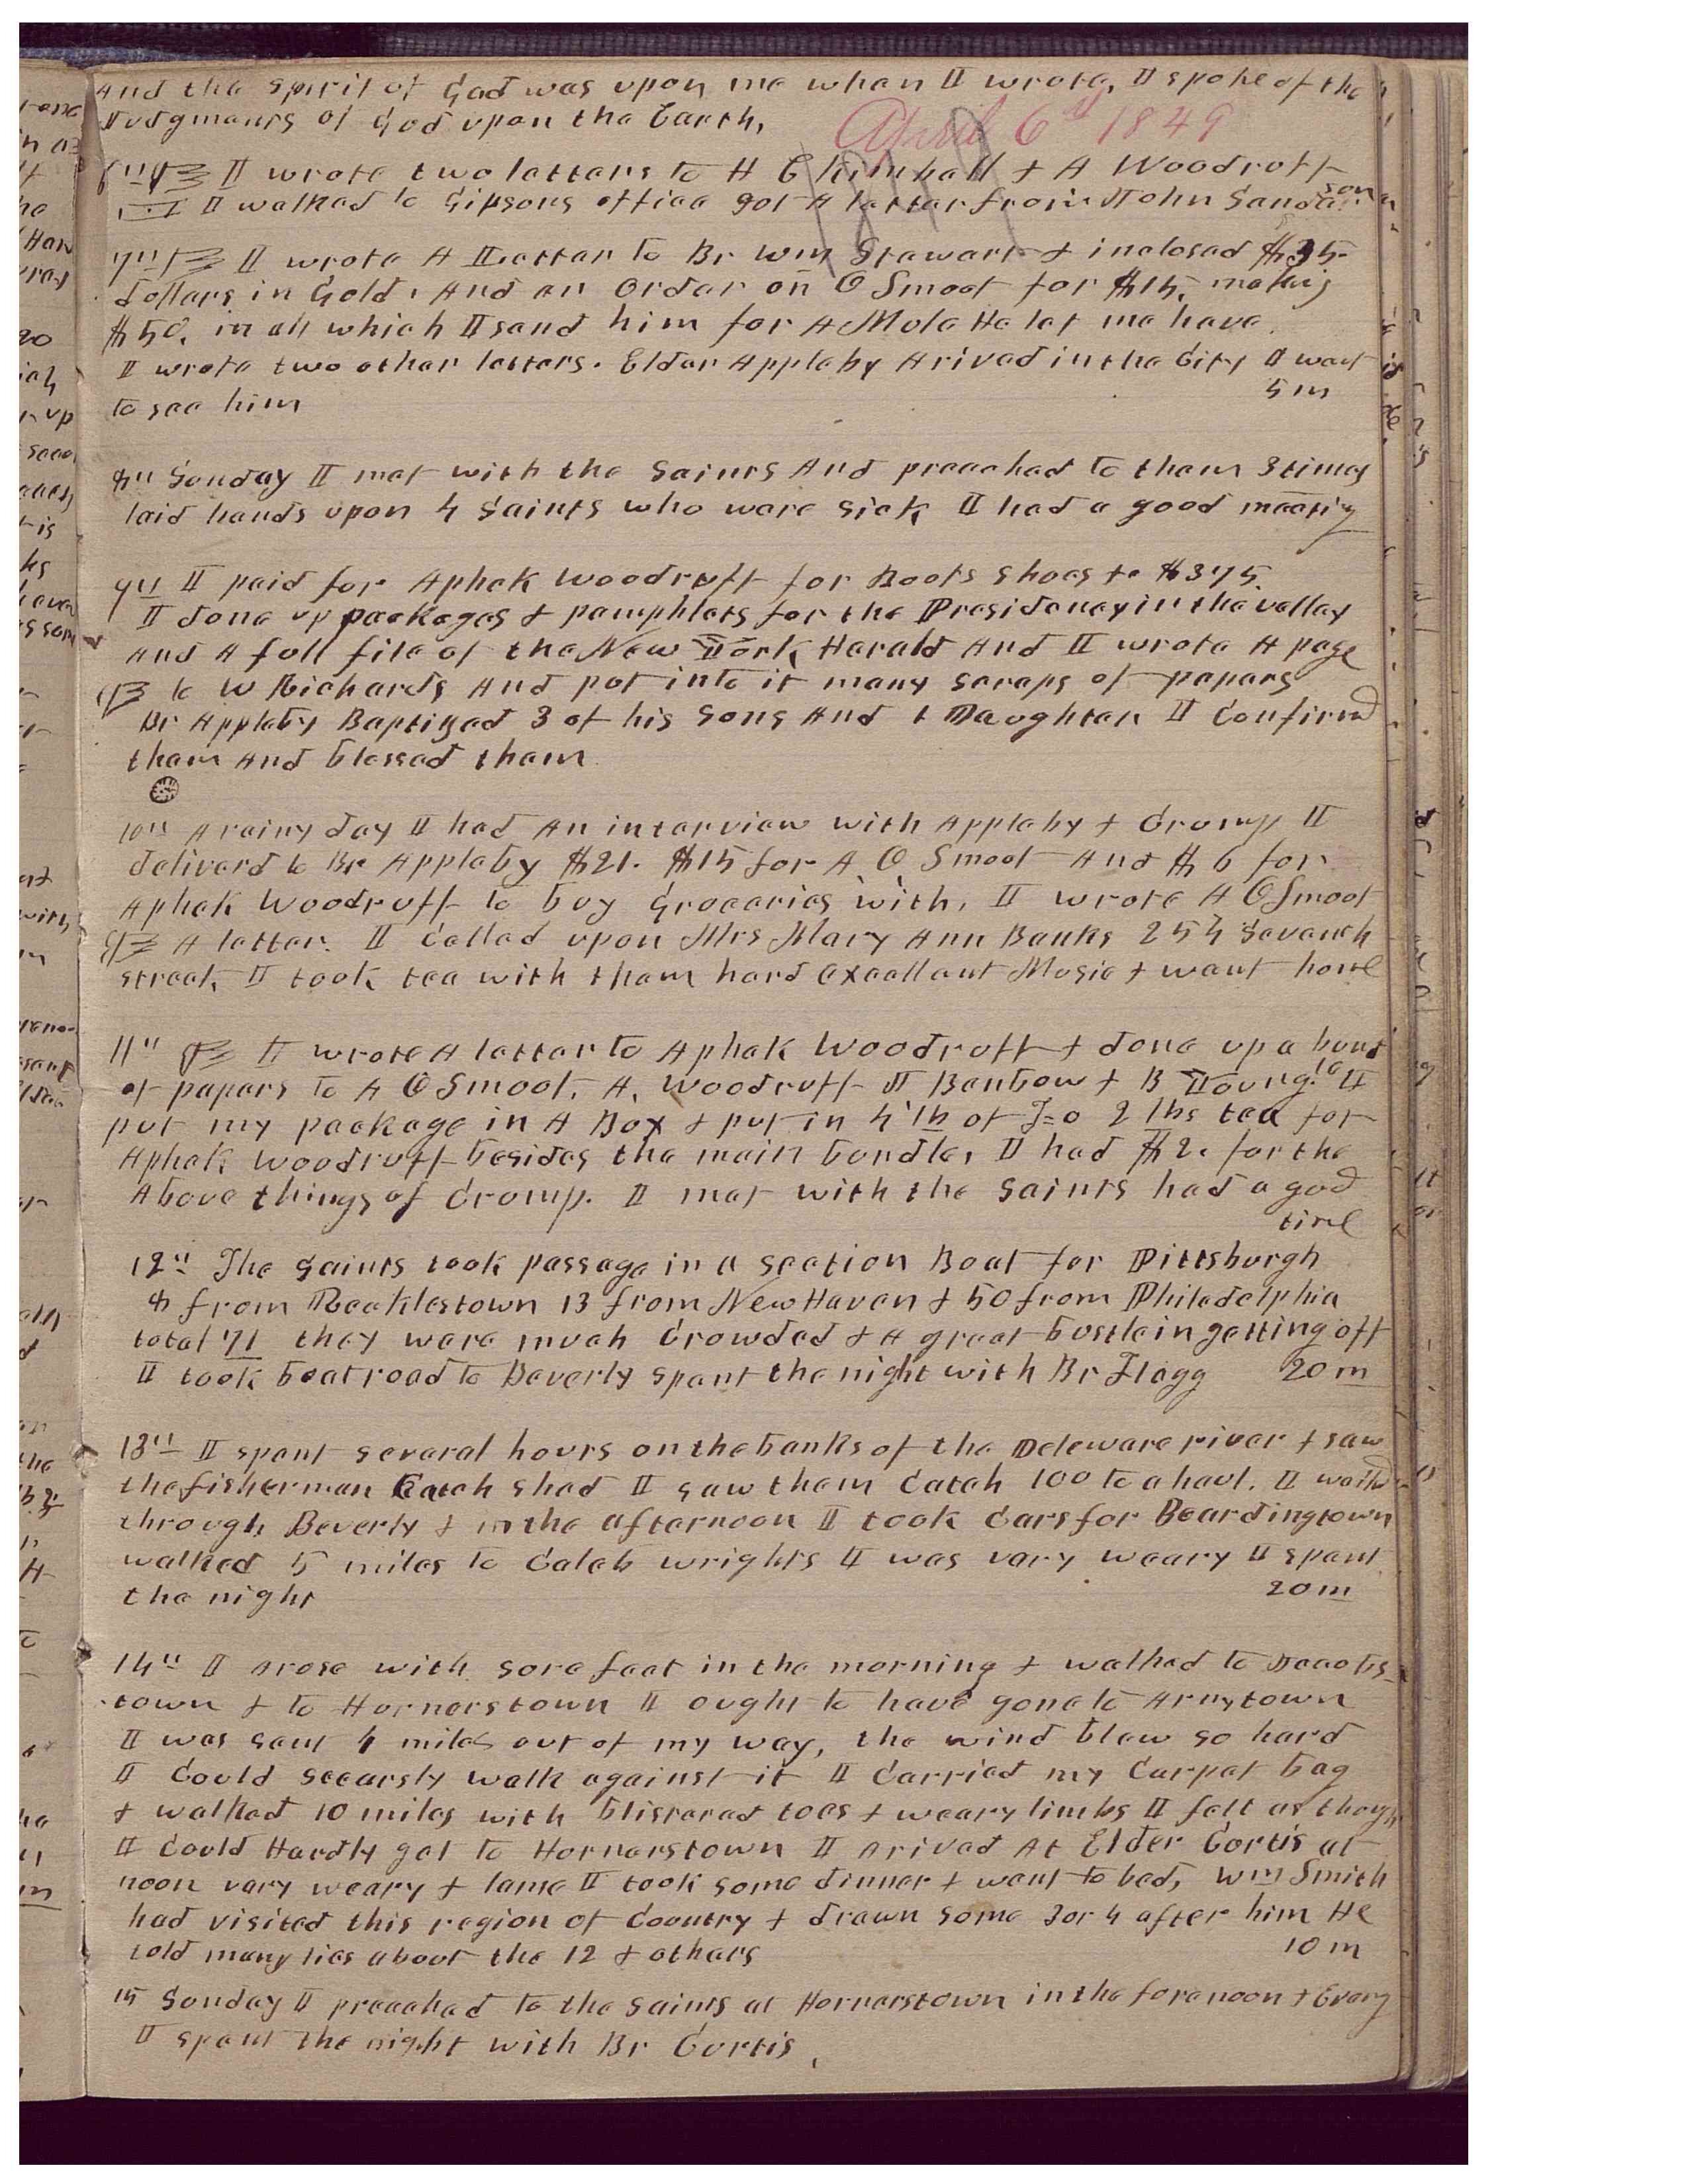 And the spirit of God was upon me when I wrote, I spoke of the
Judgments of God upon the Earth,
April 6th 1849
6th I wrote two letters to H C Kimball & A Woodruff
I walked to Gipsons office got A letter from John Sanderson
7th I wrote A Letter to Br Wm Stewart & inclosed $35
dollars in Gold. And an Order on O Smoot for $15, making
$50, in all which I send him for A Mule He let me have
I wrote two other letters. Elder Appleby Arived in the City I went
to see him 5 m
8th Sunday I met with the Saints And preached to them 3 times
laid hands upon 4 Saints who were sick I had a good meeting
9th I paid for Aphek Woodruff for Boots shoes &c $3 75.
I done up packages & pamphlets for the Presidency in the valley
And A full file of the New York Herald And I wrote A page
to W Richards And put into it many scraps of papers
Br Appleby Baptized 3 of his Sons And 1 Daughter I Confirmd
them And blessed them
10th A rainy day I had An interview with Appleby & Crump I
deliverd to Br Appleby $21. $15 for A. O. Smoot And $6 for
Aphek Woodruff to buy Groceries with, I wrote A O Smoot
A letter. I Called upon Mrs Mary Ann Banks 254 Seventh
street I took tea with them hard excellent Music & went home
11th I wrote A letter to Aphek Woodruff & done up a bund
le
of papers to A O Smoot, A. Woodruff J Benbow & B Young. I
put my package in A Box & put in 4 lb of 2 lbs tea for
Aphek Woodruff besides the main bundle, I had $2. for the
Above things of Cromp. I met with the Saints had a good
time
12th The Saints took passage in a section Boat for Pittsburgh
8 from Recklestown 13 from New Haven & 50 from Philadelphia
total 71 they were much Crowded & A great bustle in getting off
I took boat road to Beverly spent the night with Br Flagg 20 m
13th I spent several hours on the banks of the Deleware river & saw
the fisherman Catch shad I saw them Catch 100 to a haul. I walked
through Beverly & in the afternoon I took Cars for Boardingtown
walked 5 miles to Caleb wrights I was very weary I spent
the night 20 m
14th I arose with sore feet in the morning & walked to Jacobs
town & to Hornerstown I ought to have gone to Arnytown
I was sent 4 miles out of my way, the wind blew so hard
I Could scearsly walk against it I Carried my Carpet bag
& walked 10 miles with blistered toes & weary limbs I felt as though
I Could Hardly get to Hornerstown I arived At Elder Curtis at
noon very weary & lame I took some dinner & went to bed, Wm Smith
had visited this region of Country & drawn some 3 or 4 after him He
told many lies about the 12 & others 10 m
15 Sunday I preached to the Saints at Hornerstown in the forenoon & Eveng
I spent the night with Br Curtis,